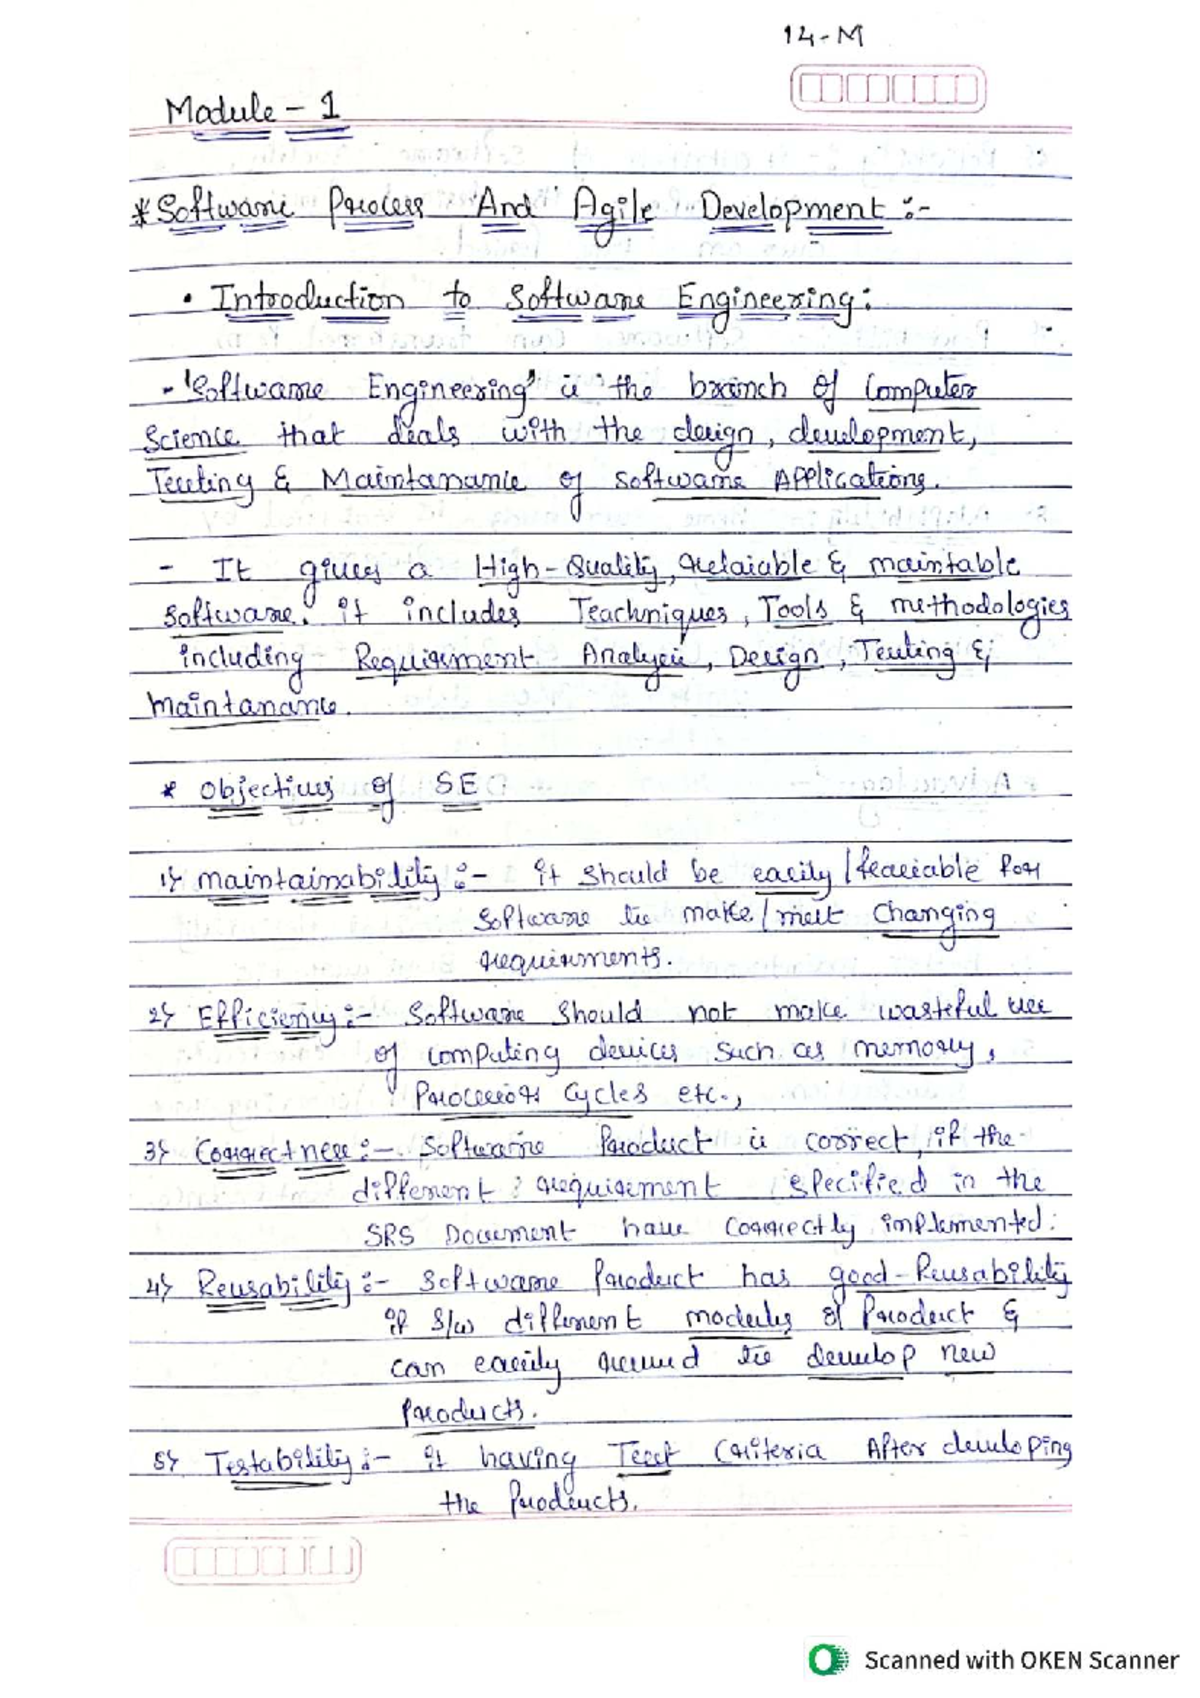 14-M
Module - 1
* Software Process And Agile Development :-
• Introduction to Software Engineering :
- 'Software Engineering' is the branch of Computer
Science that deals with the design, development,
Testing & Maintanance of software Applications.
- It gives a High-Quality, relaiable & maintable
software. it includes Teachniques, Tools & methodologies
including Requirment Analysis, Design, Testing &
maintanance.
* Objectives of SE
1) maintainability :- it should be easily / feasiable for
software to make / meet Changing
requirments.
2) Efficiency :- Software should not make wasteful use
of computing devices such as memory,
Processors Cycles etc.,
3) Correctness :- Software Product is correct, if the
different requirement specified in the
SRS Document have Correctly implemented.
4) Reusability :- Software Product has good-Reusability
if S/w different modules of Product &
can easily reused to develop new
Products.
5) Testability :- it having Test Criteria After developing
the Products.
Scanned with OKEN Scanner